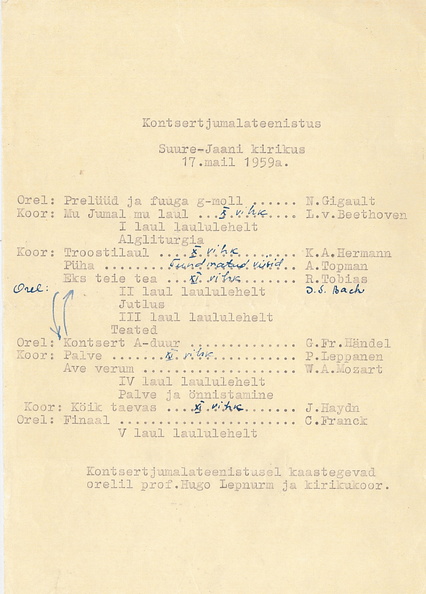 Kontsertjumalateenistus
Suure-Jaani kirikus
17.mail 1959a.
Orel: Prelüüd ja fuuga g-moll ...... N.Gigault
Koor: Mu Jumal mu laul ... X. vihk ... L.v.Beethoven
I laul laululehelt
Algliturgia
Koor: Troostilaul ... X. vihk ... K.A.Hermann
Püha ... A.Topman
Eks teie tea ... XI. vihk ... R.Tobias
Orel: II laul laululehelt J.S. Bach
Jutlus
III laul laululehelt
Teated
Orel: Kontsert A-duur ............. G.Fr.Händel
Koor: Palve ..... vihk ......... P.Leppanen
Ave verum .................... W.A.Mozart
IV laul laululehelt
Palve ja õnnistamine
Koor: Kõik taevas ... XI. vihk ...... J.Haydn
Orel: Finaal ...................... C.Franck
V laul laululehelt
Kontsertjumalateenistusel kaastegevad
orelil prof.Hugo Lepnurm ja kirikukoor.